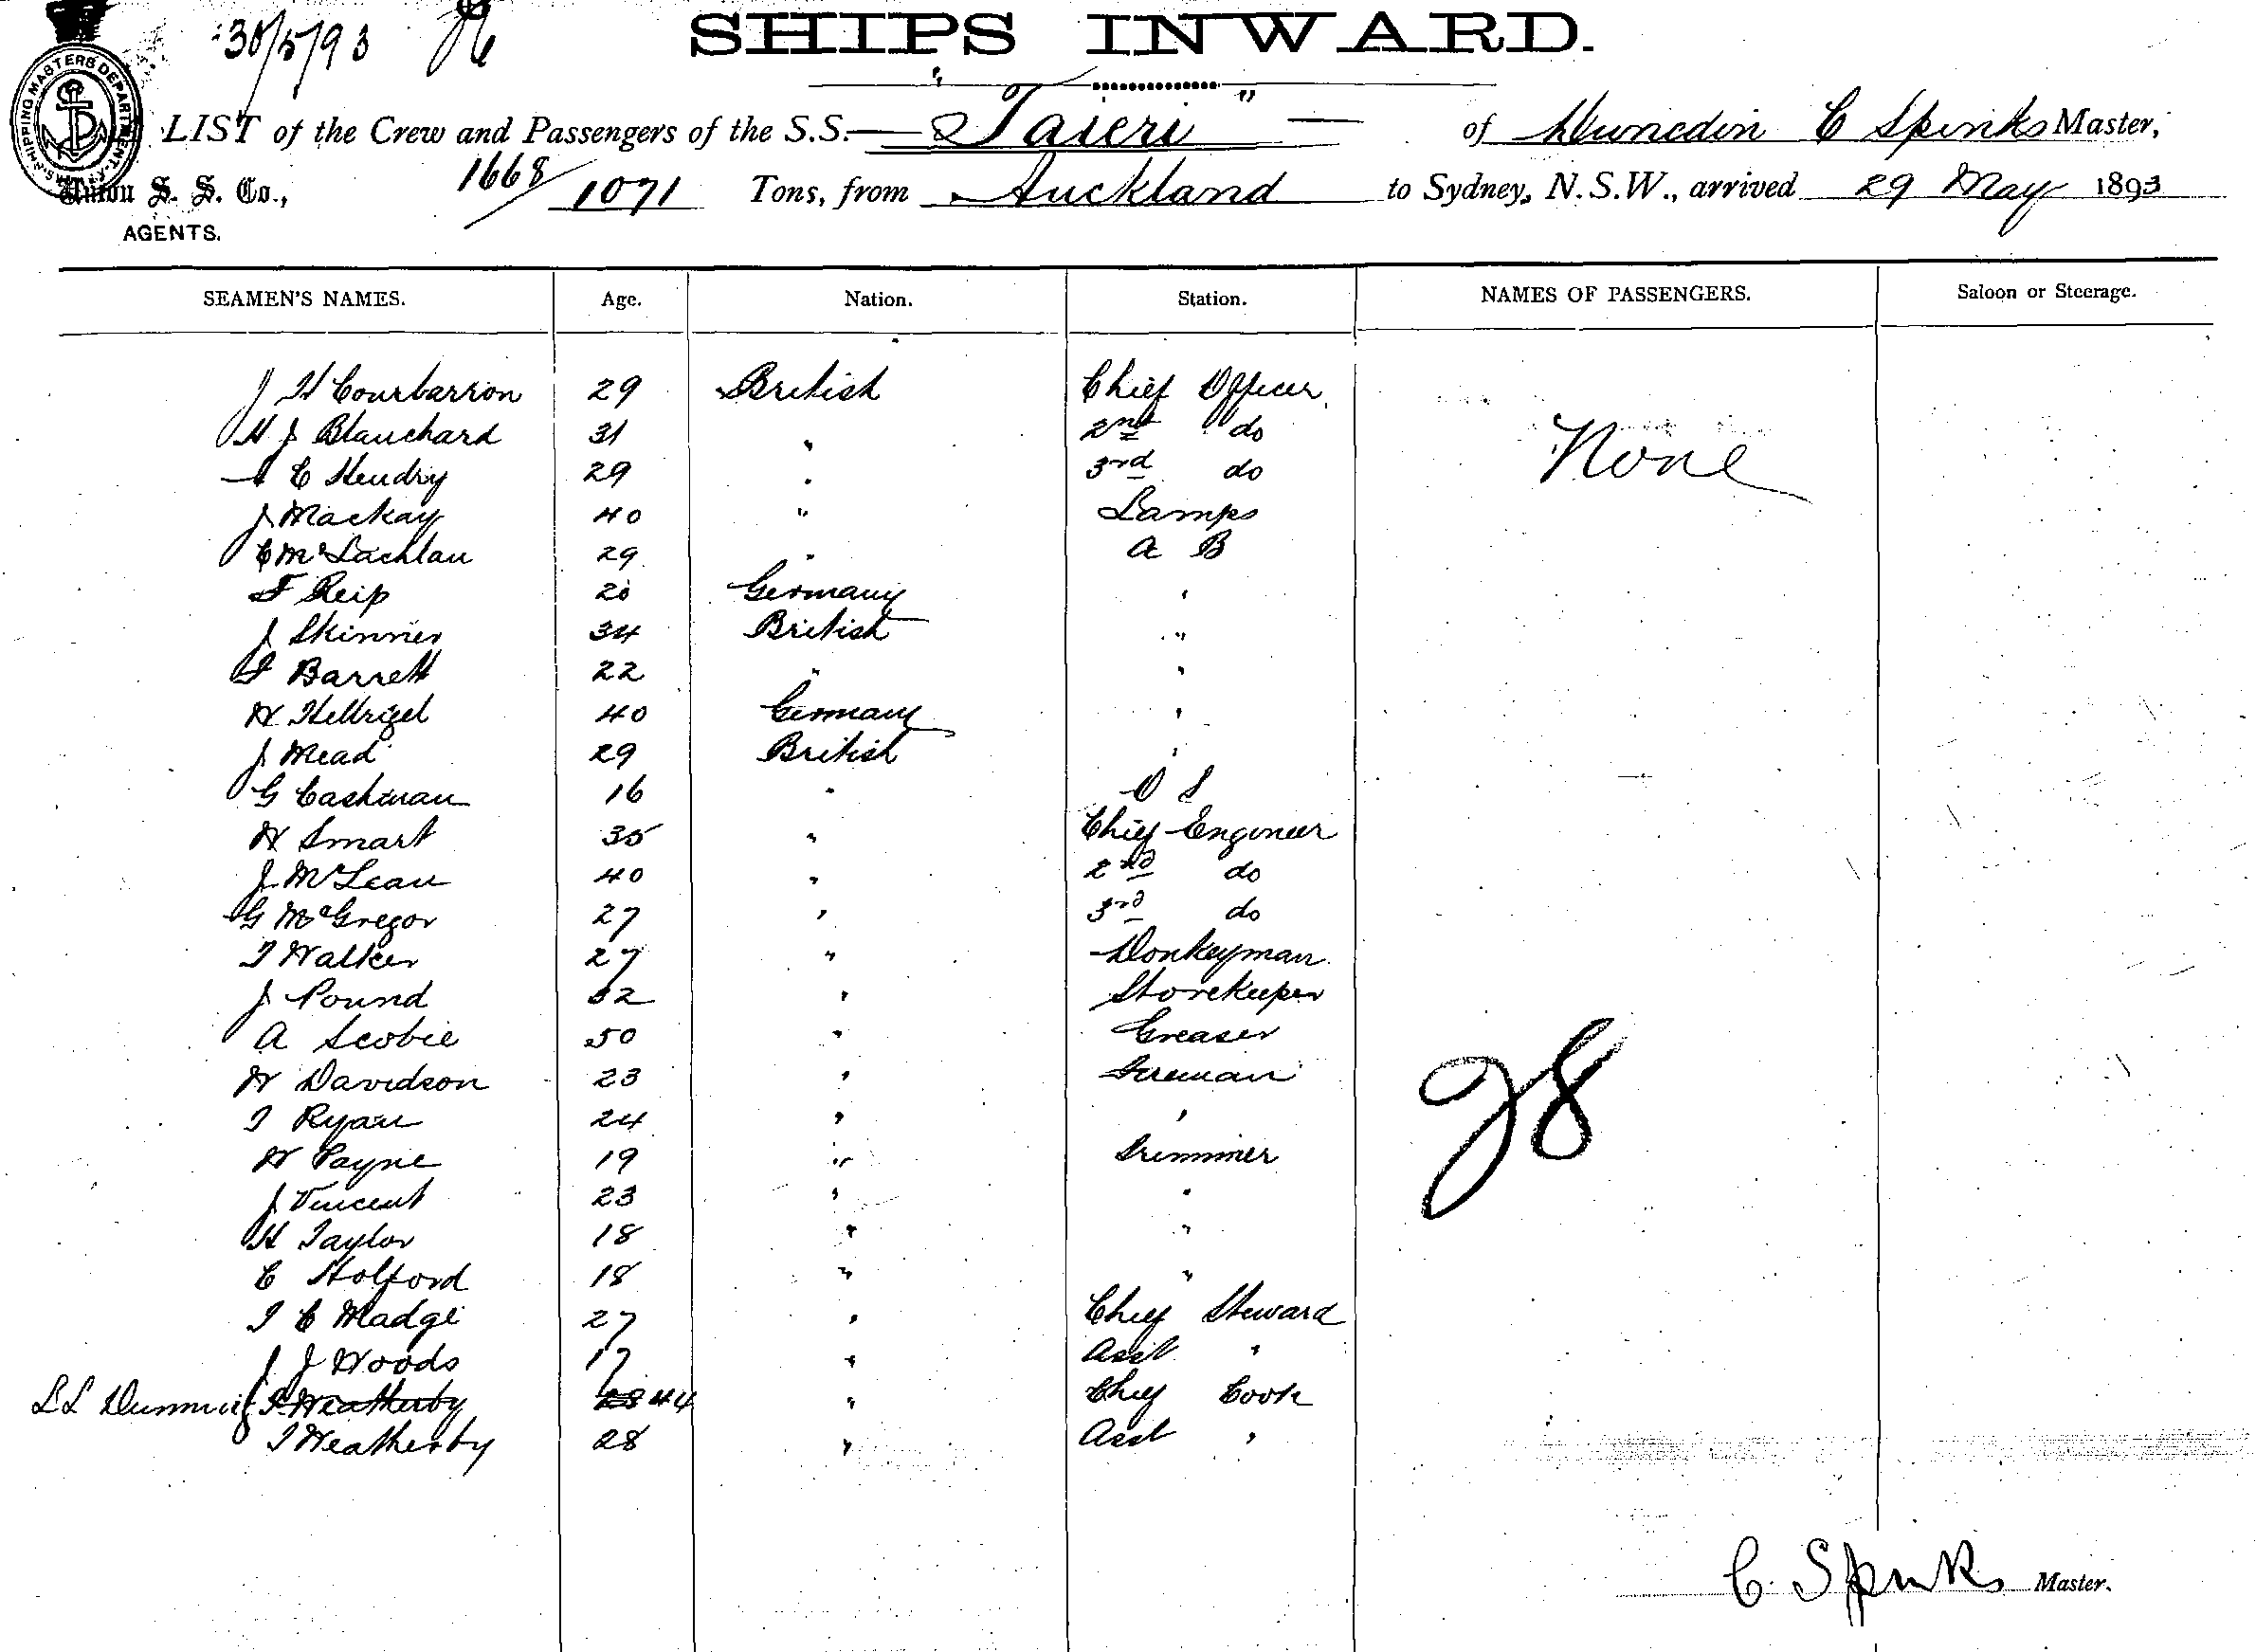 30/5/93
SHIPS INWARD.
SHIPPING MASTERS DEPARTMENT
LIST of the Crew and Passengers of the S.S. "Taieri" of Dunedin C Spinks Master,
Union S. S. Co., 1668/1071 Tons, from Auckland to Sydney, N.S.W., arrived 29 May 1893
AGENTS.
SEAMEN'S NAMES. Age. Nation. Station. NAMES OF PASSENGERS. Saloon or Steerage.
J H Courbarron 29 British Chief Officer
H J Blanchard 31 " 2nd do
C Hendry 29 " 3rd do None
J Mackay 40 " Lamps
C McLachlan 29 " A B
F Reip 20 Germany "
J Skinner 34 British "
F Barrett 22 " "
W Hellrigel 40 Germany "
J Mead 29 British "
G Cashman 16 " O S
W Smart 35 " Chief Engineer
J McLean 40 " 2nd do
G McGregor 27 " 3rd do
T Walker 27 " Donkeyman
J Pound 32 " Storekeeper
A Scobie 50 " Greaser
W Davidson 23 " Fireman
T Ryan 24 " "
W Payne 19 " Trimmer
J Vincent 23 " "
H Taylor 18 " "
C Holford 18 " "
T C Madge 27 " Chief Steward
J J Woods 17 " Asst "
T Weatherby 28 44 " Chief Cook
T Weatherby 28 " Asst "
28
C. Spinks Master.